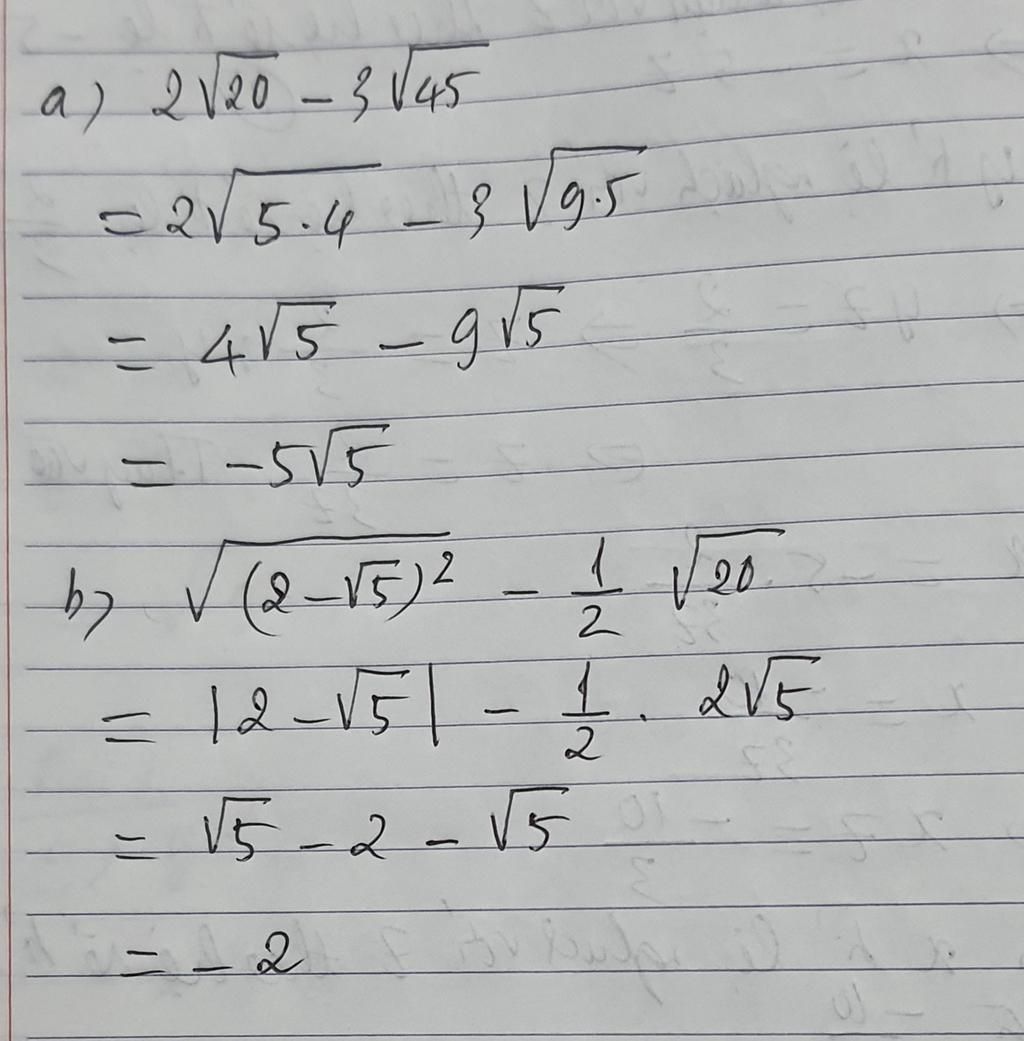 a) 2√20 - 3√45
= 2√5.4 - 3√9.5
= 4√5 - 9√5
= -5√5
b) √(2-√5)² - 1/2 √20
= |2-√5| - 1/2 . 2√5
= √5 - 2 - √5
= - 2